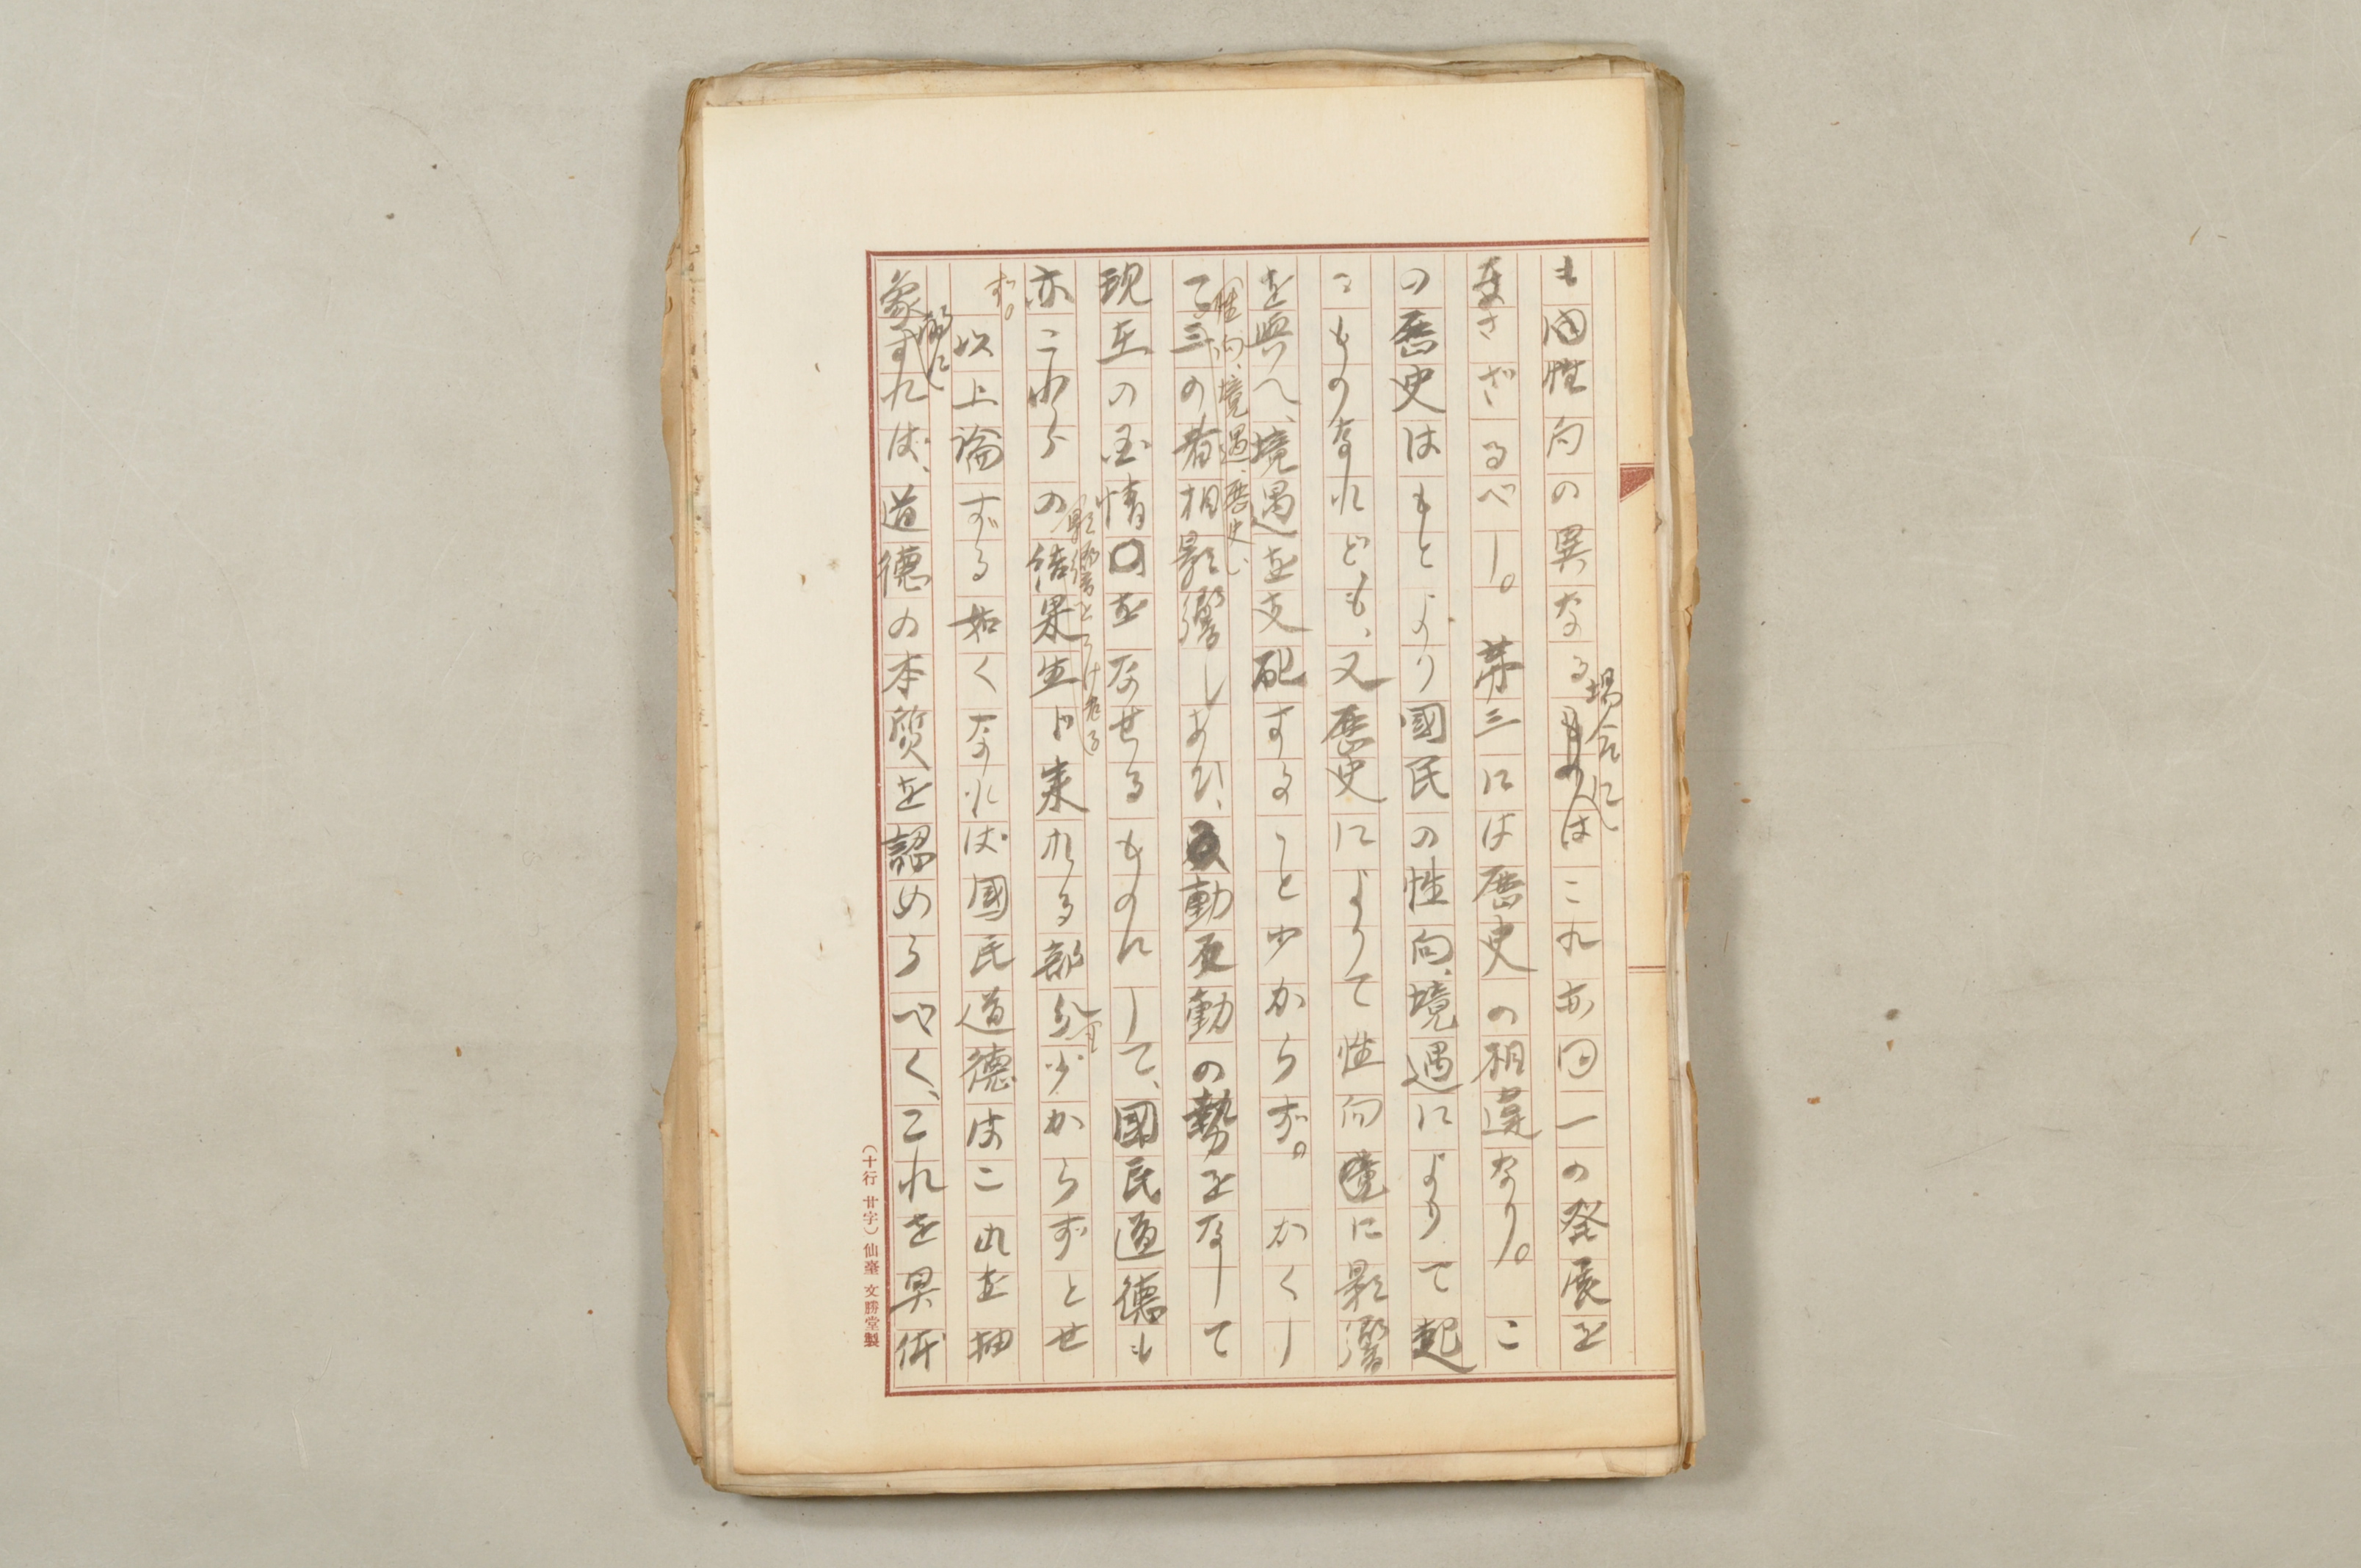 も国性向の異なる場合にはこれ亦同一の発展を
なさざるべし。第三には歴史の相違なり。こ
の歴史はもとより國民の性向、境遇によりて起
こものなれども、又歴史によりて性向境に影響
を與へ、境遇を支配すること少からず。かくし
て三の者相影響しあひ、動反動の勢をなして
性向、境遇、歴史、
現在の国情をなせるものにして、國民道徳も
亦これらの結果生じ来れる部分少からずとせ
影響をうけたる
ず。
以上論ずる如くなれば國民道徳はこれを抽
象すれば、道徳の本質を認めうべく、これを具体
的に
(十行廿字)仙臺 文勝堂製